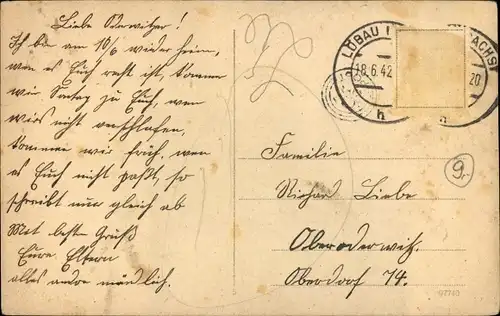 Liebe Oderwitzer!
Ich bin am 10/6 wieder heim,
wen es Euch recht ist, kommen
wir Sontag zu Euch, wen
wirs nicht verschlafen,
kommen wir früh, wen
es Euch nicht paßt, so
schreibt nur gleich ab
Mit besten Gruß
Eure Eltern
alles andre mündlich.
LÖBAU SACHS
18.6.42 20
h h
9.
Familie
Richard Liebe
Oberoderwitz.
Oberdorf 74.
97740